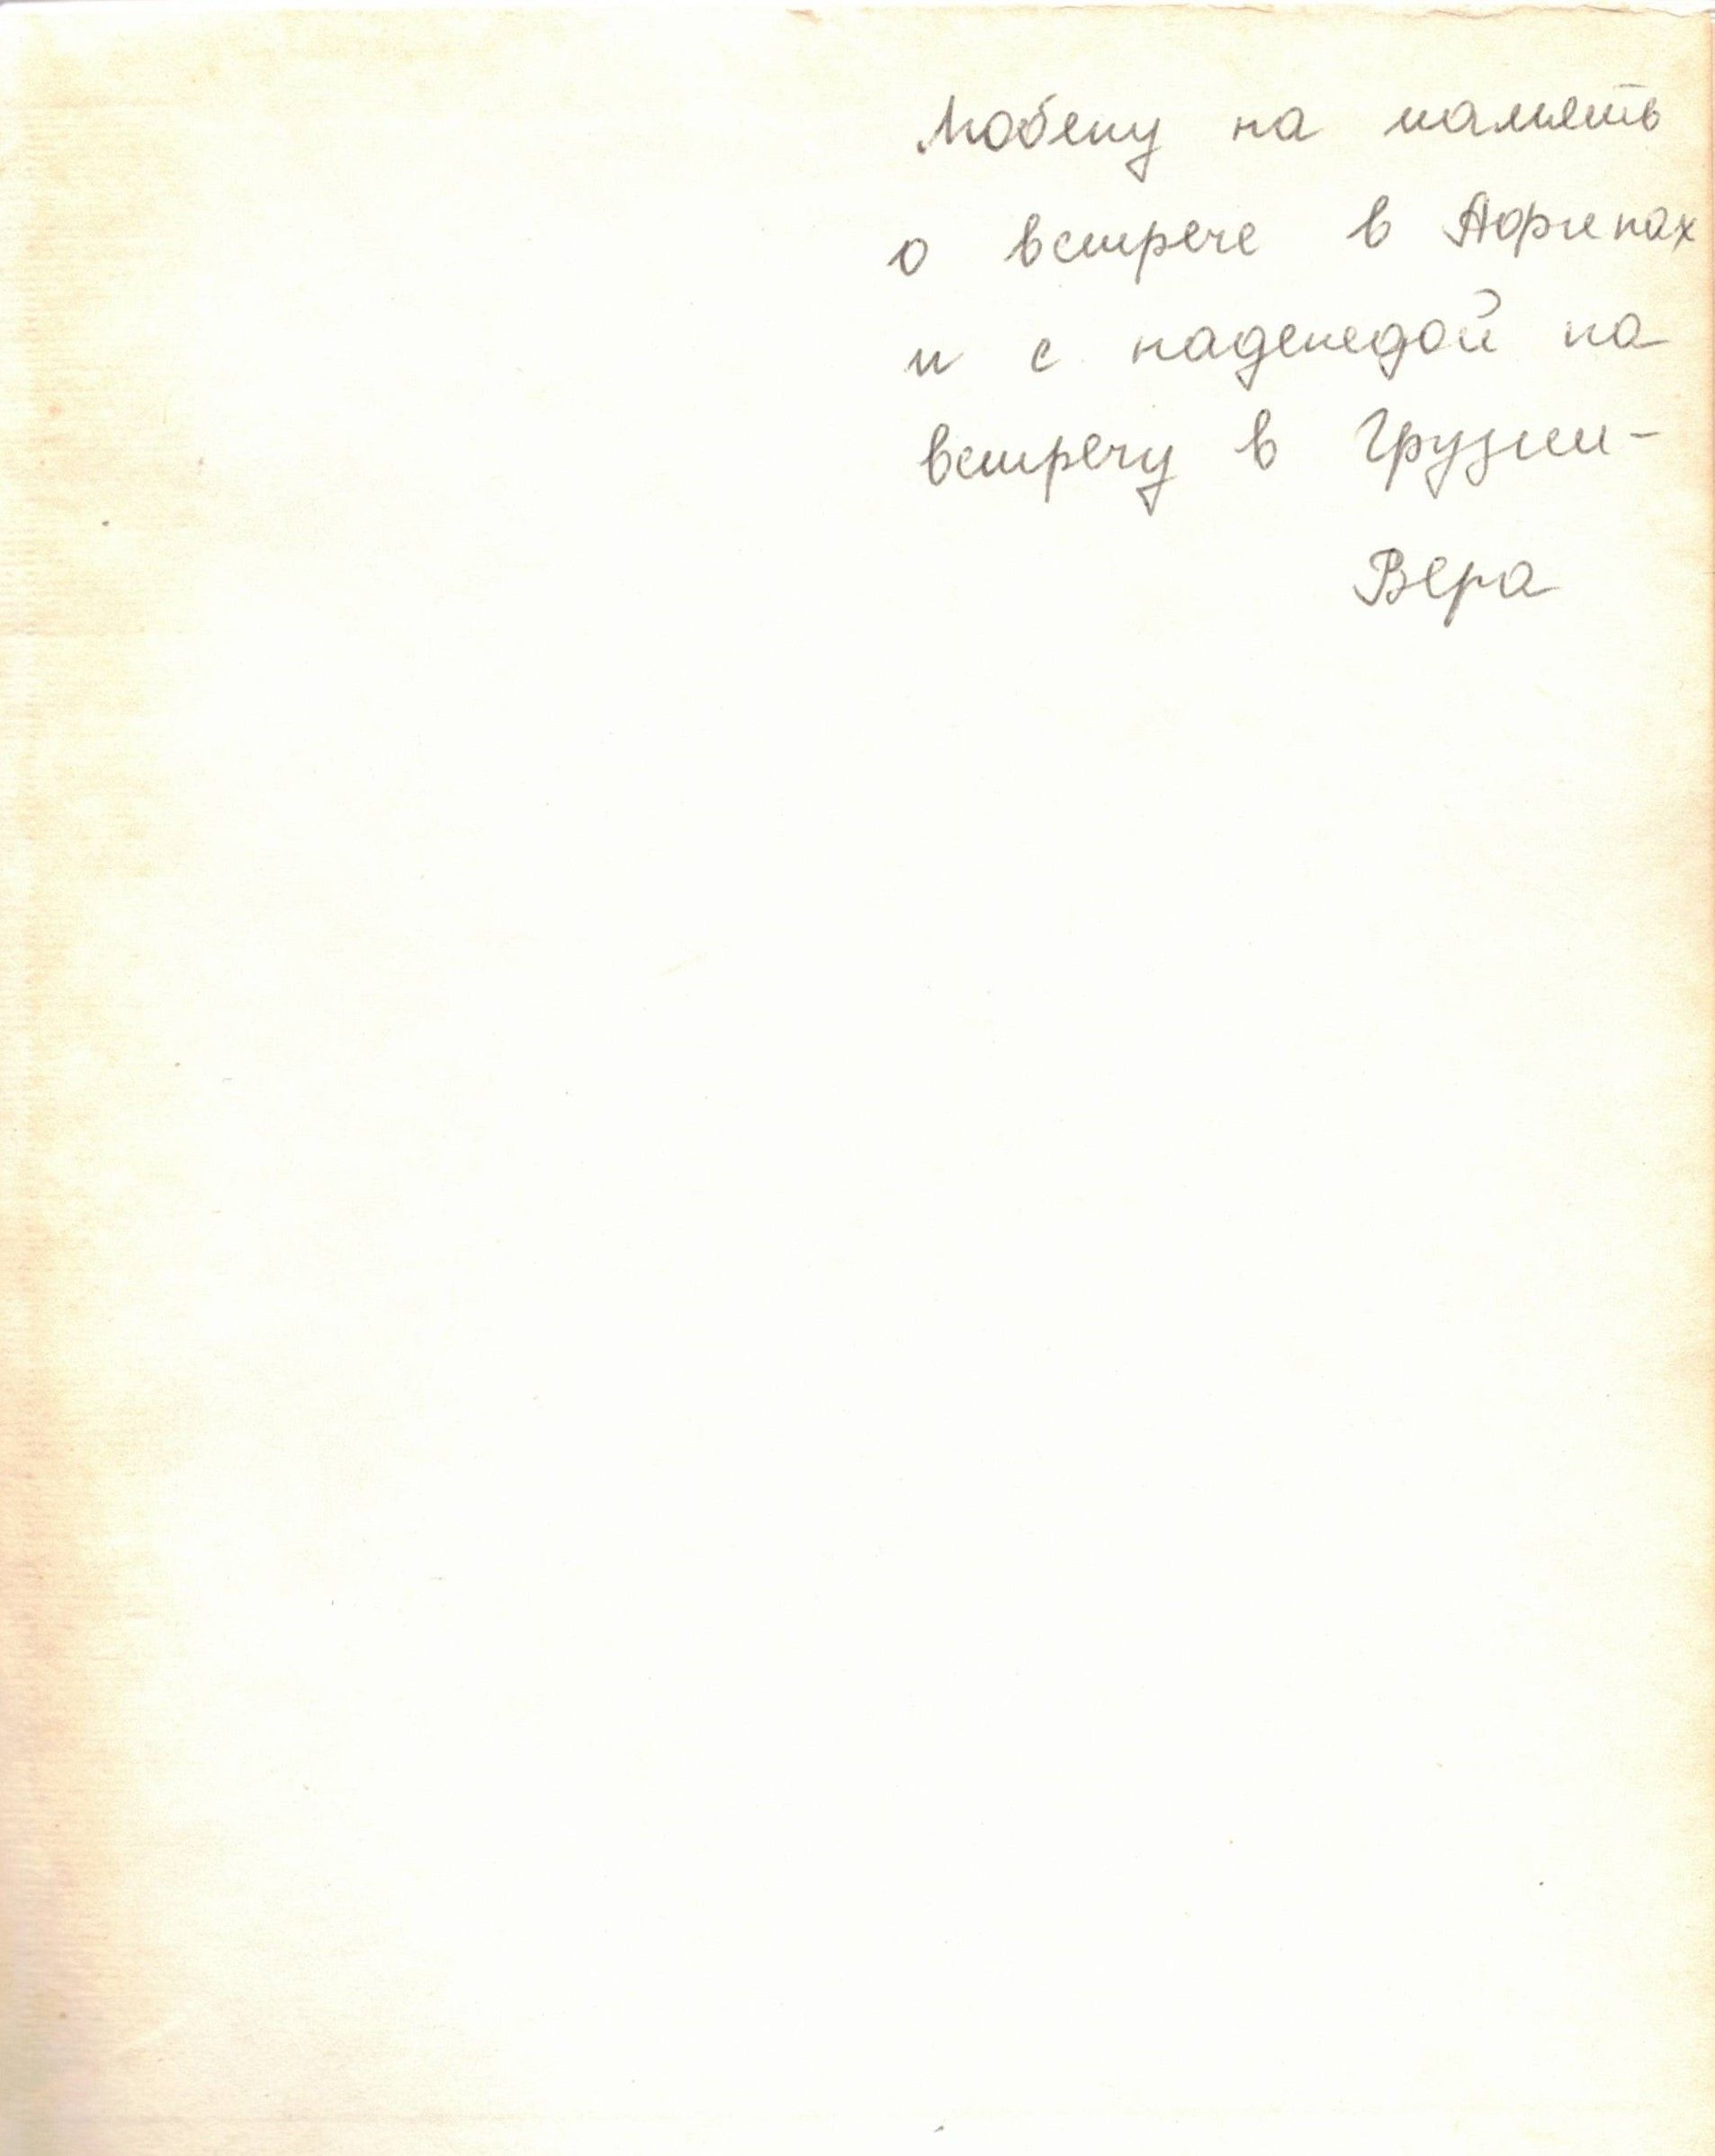 Любену на память
о встрече в Афинах
и с надеждой на
встречу в Грузии -
Вера